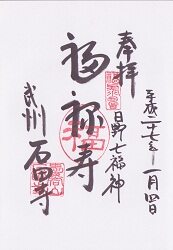 奉拝
平成二十七年一月四日
日野七福神
福禄寿
武州 石田寺